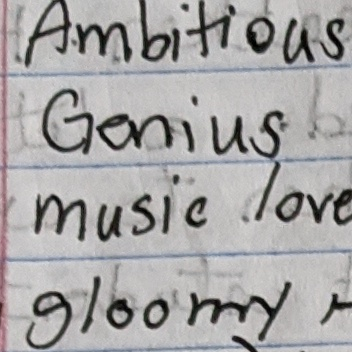 Ambitious
Genius
music love
gloomy